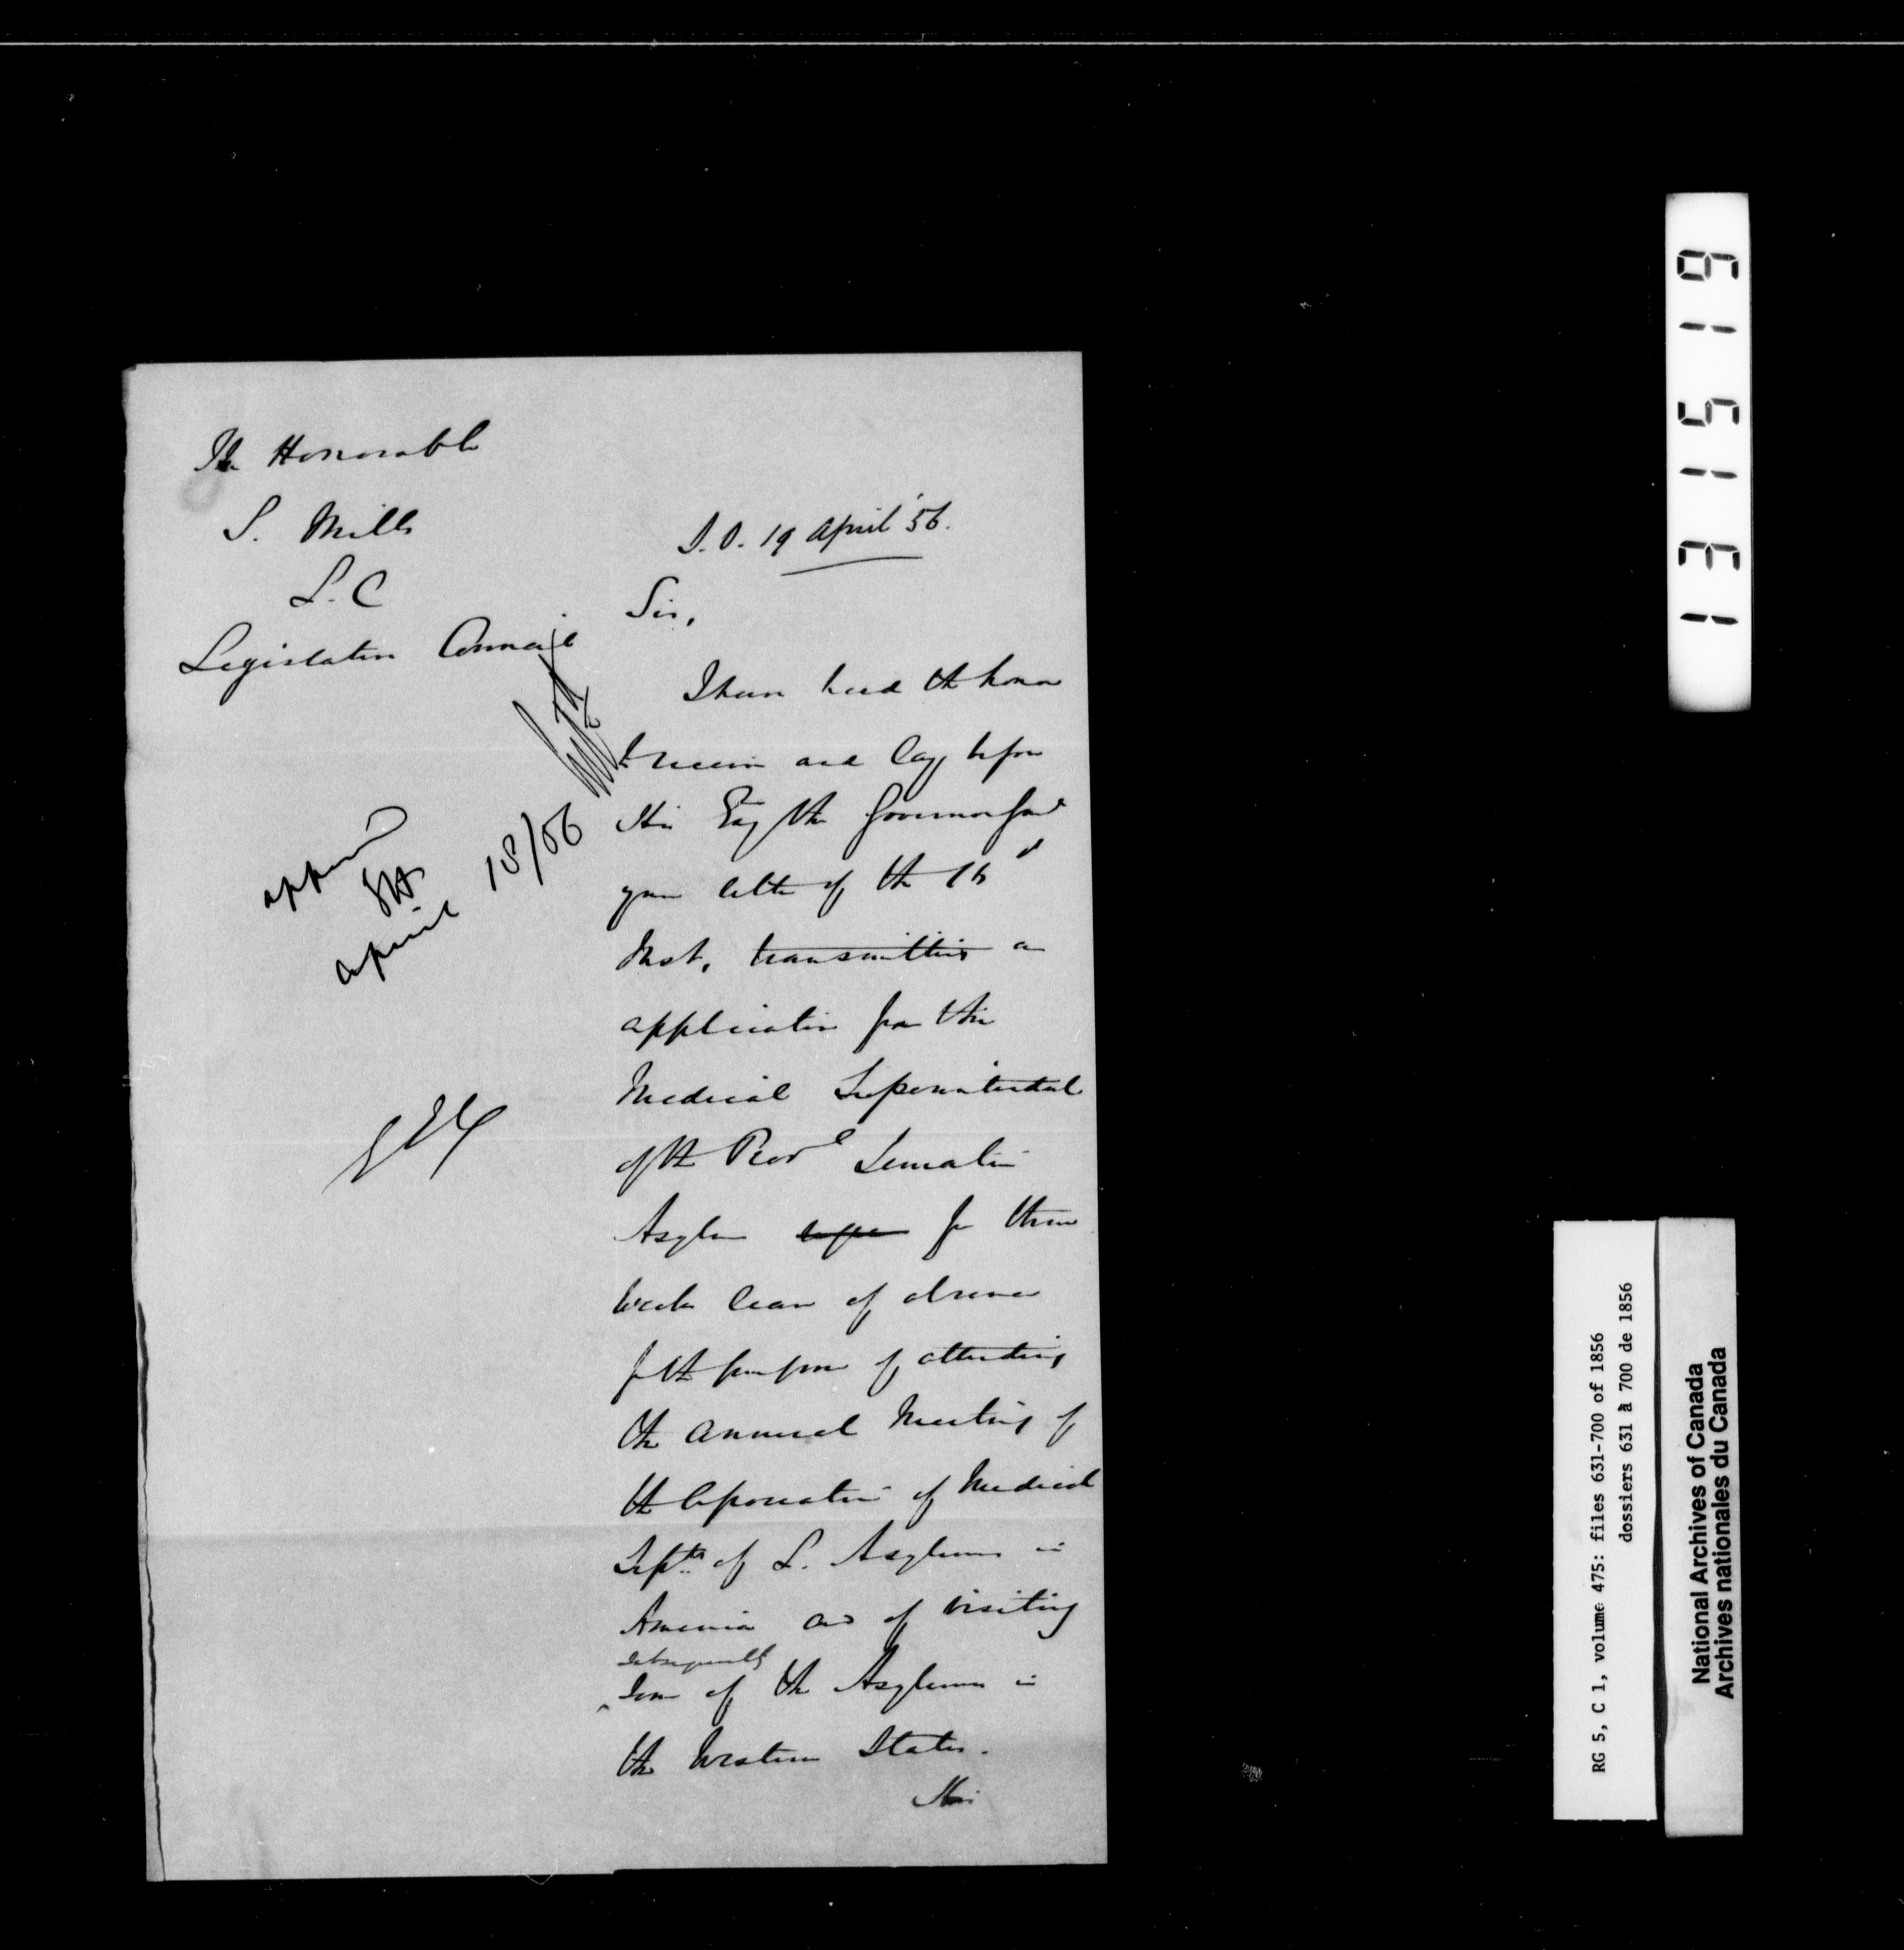 The Honorable
S. Mills
L. C
Legislative Council
S.O. 19 April '56.
Sir,
I have had the honor
to receive and lay before
His Exy the Governor Genl
your letter of the 16th
Inst, transmitting an
application from the
Medical Superintendent
of the Provl Lunatic
Asylum for three
weeks leave of absence
for the purpose of attending
the annual Meeting of
the Association of Medical
Supts of L. Asylums in
America and of visiting
subsequently
some of the Asylums in
the Western States.
His
approved
EH
April 18/56
131519
RG 5, C 1, volume 475: files 631-700 of 1856
dossiers 631 à 700 de 1856
National Archives of Canada
Archives nationales du Canada